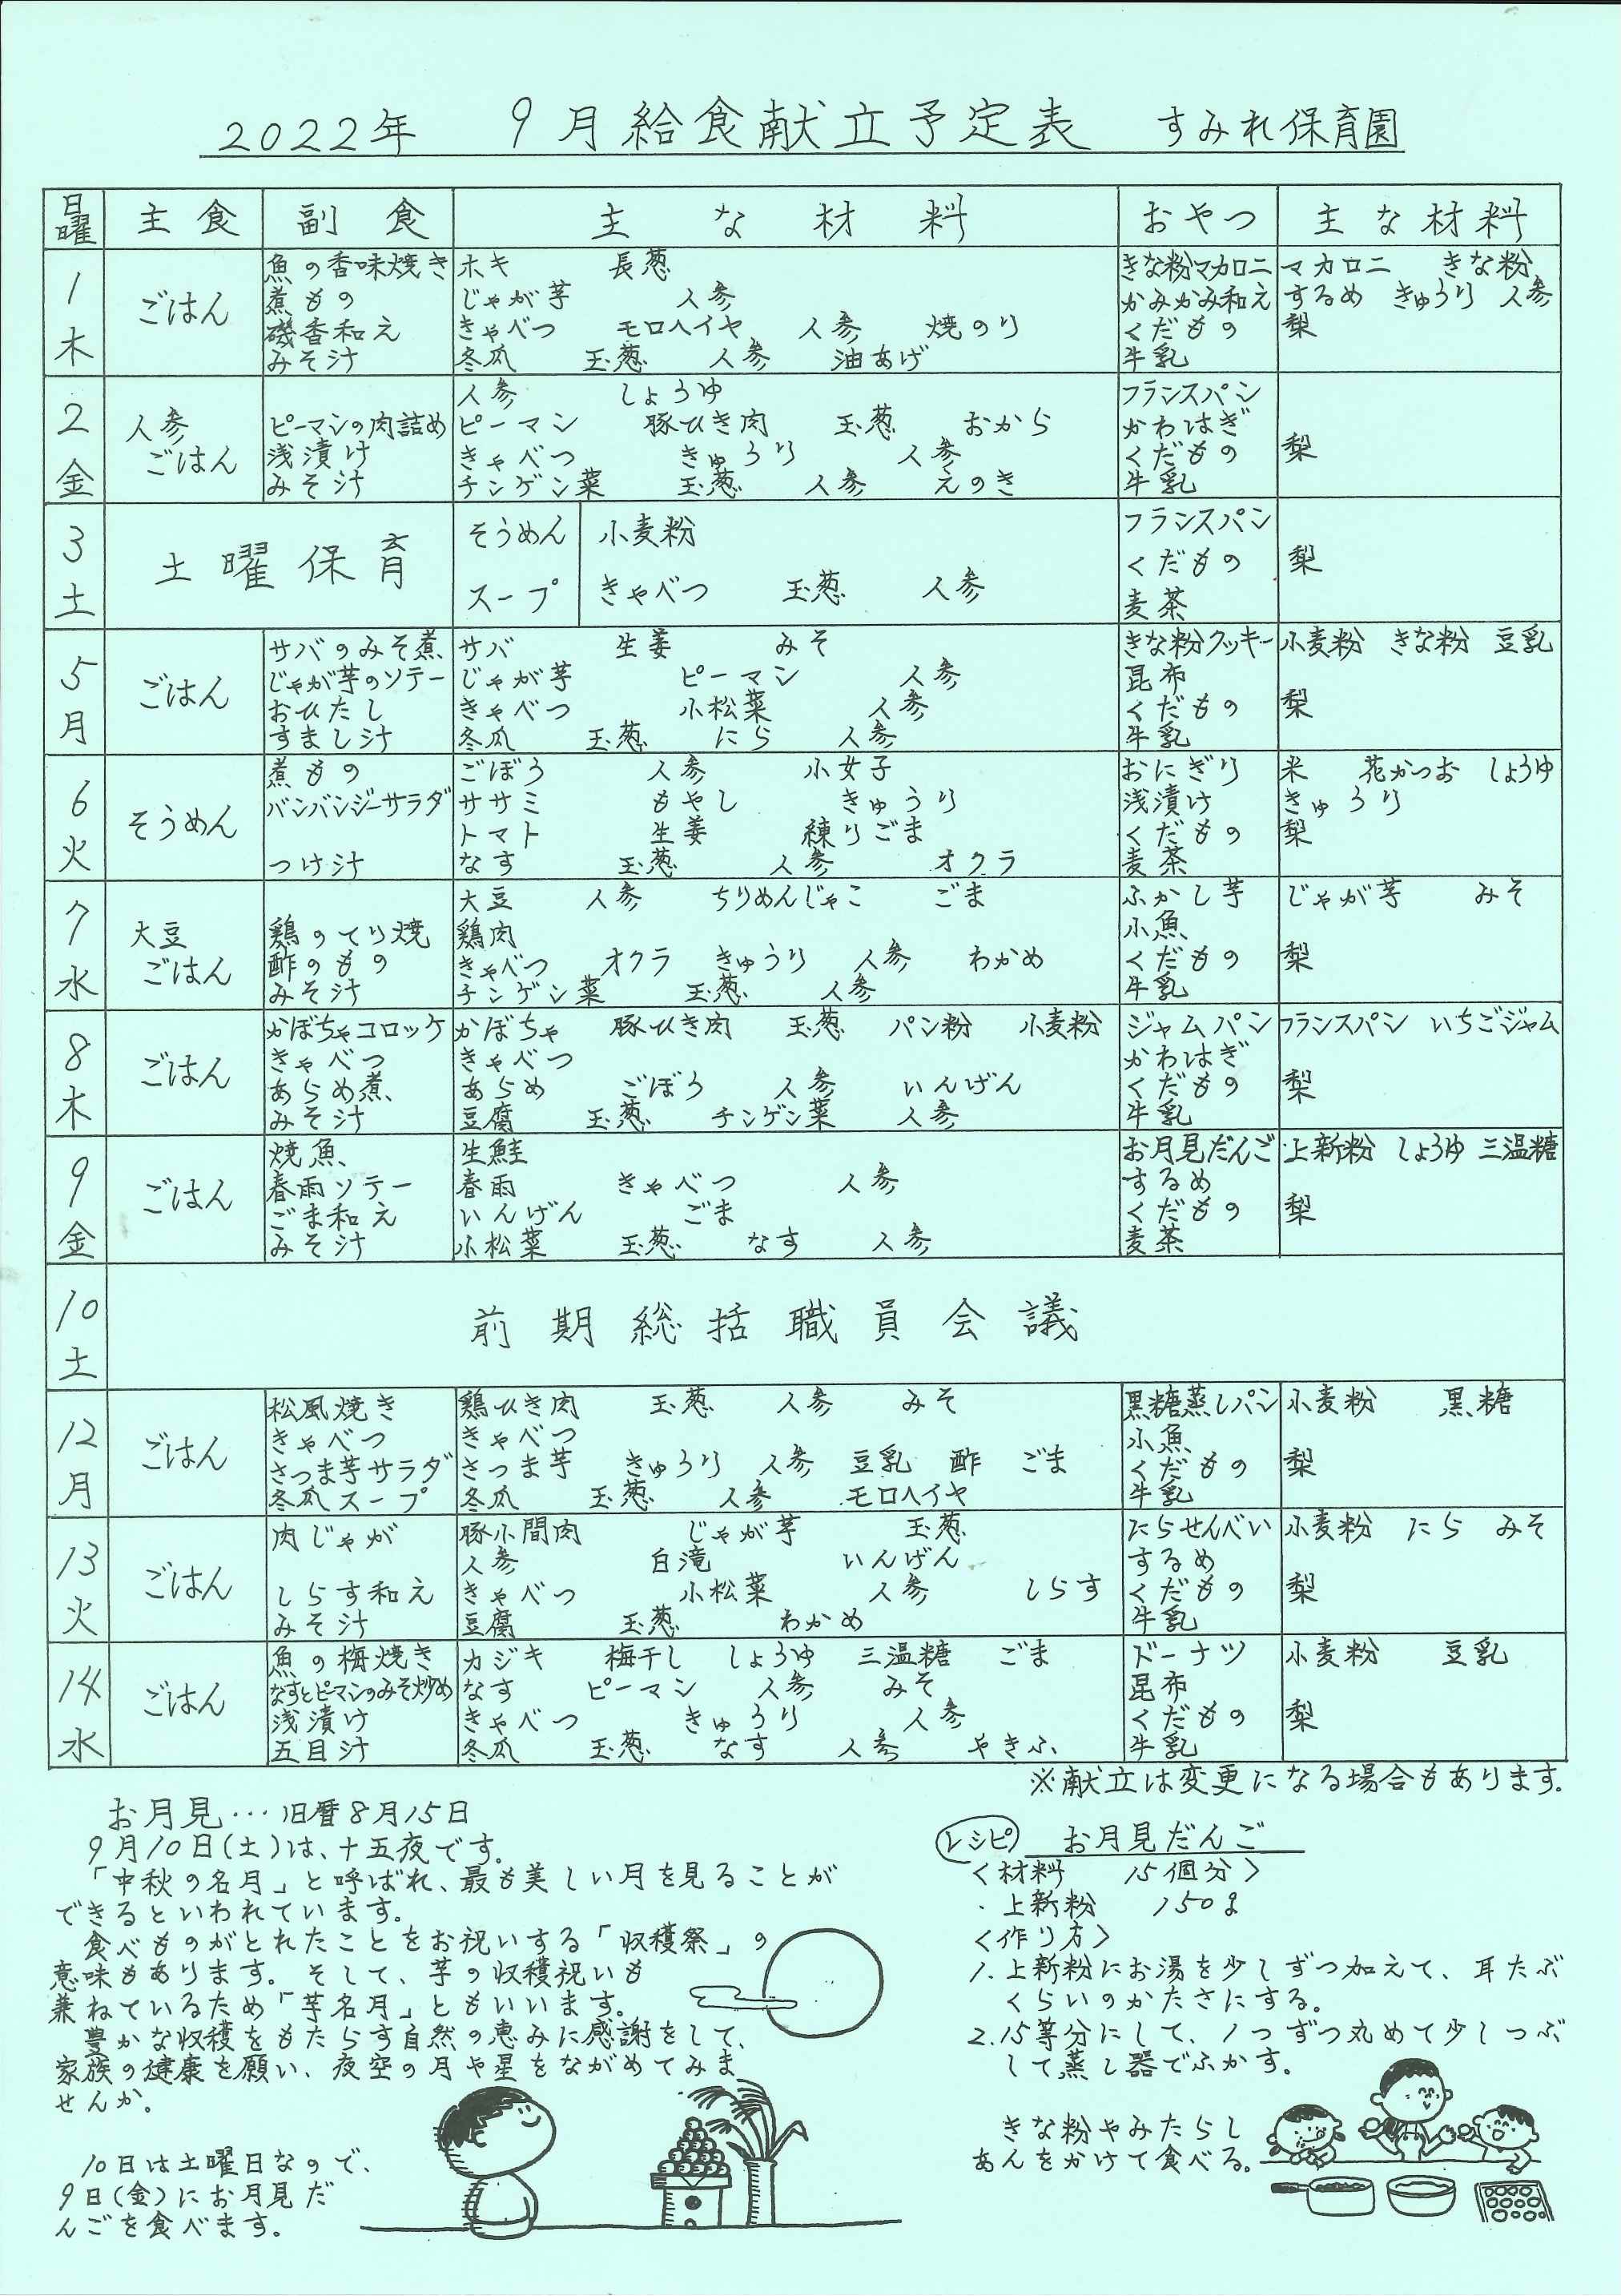 2022年 9月給食献立予定表 すみれ保育園
日曜 主食 副食 主な材料 おやつ 主な材料
1 木 ごはん
魚の香味焼き ホキ 長葱 きな粉マカロニ マカロニ きな粉
煮もの じゃが芋 人参 かみかみ和え するめ きゅうり 人参
磯香和え きゃべつ モロヘイヤ 人参 焼のり くだもの 梨
みそ汁 冬瓜 玉葱 人参 油あげ 牛乳
2 金 人参ごはん
人参 しょうゆ フランスパン
ピーマンの肉詰め ピーマン 豚ひき肉 玉葱 おから かわはぎ
浅漬け きゃべつ きゅうり 人参 くだもの 梨
みそ汁 チンゲン菜 玉葱 人参 えのき 牛乳
3 土 土曜保育
そうめん 小麦粉 フランスパン
くだもの 梨
スープ きゃべつ 玉葱 人参 麦茶
5 月 ごはん
サバのみそ煮 サバ 生姜 みそ きな粉クッキー 小麦粉 きな粉 豆乳
じゃが芋のソテー じゃが芋 ピーマン 人参 昆布
おひたし きゃべつ 小松菜 人参 くだもの 梨
すまし汁 冬瓜 玉葱 にら 人参 牛乳
6 火 そうめん
煮もの ごぼう 人参 小女子 おにぎり 米 花かつお しょうゆ
バンバンジーサラダ ササミ もやし きゅうり 浅漬け きゅうり
トマト 生姜 練りごま くだもの 梨
つけ汁 なす 玉葱 人参 オクラ 麦茶
7 水 大豆ごはん
大豆 人参 ちりめんじゃこ ごま ふかし芋 じゃが芋 みそ
鶏のてり焼 鶏肉 小魚
酢のもの きゃべつ オクラ きゅうり 人参 わかめ くだもの 梨
みそ汁 チンゲン菜 玉葱 人参 牛乳
8 木 ごはん
かぼちゃコロッケ かぼちゃ 豚ひき肉 玉葱 パン粉 小麦粉 ジャムパン フランスパン いちごジャム
きゃべつ きゃべつ かわはぎ
あらめ煮 あらめ ごぼう 人参 いんげん くだもの 梨
みそ汁 豆腐 玉葱 チンゲン菜 人参 牛乳
9 金 ごはん
焼魚 生鮭 お月見だんご 上新粉 しょうゆ 三温糖
春雨ソテー 春雨 きゃべつ 人参 するめ
ごま和え いんげん ごま くだもの 梨
みそ汁 小松菜 玉葱 なす 人参 麦茶
10 土 前期総括職員会議
12 月 ごはん
松風焼き 鶏ひき肉 玉葱 人参 みそ 黒糖蒸しパン 小麦粉 黒糖
きゃべつ きゃべつ 小魚
さつま芋サラダ さつま芋 きゅうり 人参 豆乳 酢 ごま くだもの 梨
冬瓜スープ 冬瓜 玉葱 人参 モロヘイヤ 牛乳
13 火 ごはん
肉じゃが 豚小間肉 じゃが芋 玉葱 にらせんべい 小麦粉 にら みそ
人参 白滝 いんげん するめ
しらす和え きゃべつ 小松菜 人参 しらす くだもの 梨
みそ汁 豆腐 玉葱 わかめ 牛乳
14 水 ごはん
魚の梅焼き カジキ 梅干し しょうゆ 三温糖 ごま ドーナツ 小麦粉 豆乳
なすとピーマンのみそ炒め なす ピーマン 人参 みそ 昆布
浅漬け きゃべつ きゅうり 人参 くだもの 梨
五目汁 冬瓜 玉葱 なす 人参 やきふ 牛乳
※献立は変更になる場合もあります。
お月見…旧暦8月15日
9月10日(土)は、十五夜です。
「中秋の名月」と呼ばれ、最も美しい月を見ることが
できるといわれています。
食べものがとれたことをお祝いする「収穫祭」の
意味もあります。そして、芋の収穫祝いも
兼ねているため「芋名月」ともいいます。
豊かな収穫をもたらす自然の恵みに感謝をして、
家族の健康を願い、夜空の月や星をながめてみま
せんか。
10日は土曜日なので、
9日(金)にお月見だ
んごを食べます。
レシピ お月見だんご
<材料 15個分>
・上新粉 150g
<作り方>
1.上新粉にお湯を少しずつ加えて、耳たぶ
くらいのかたさにする。
2.15等分にして、1つずつ丸めて少しつぶ
して蒸し器でふかす。
きな粉やみたらし
あんをかけて食べる。